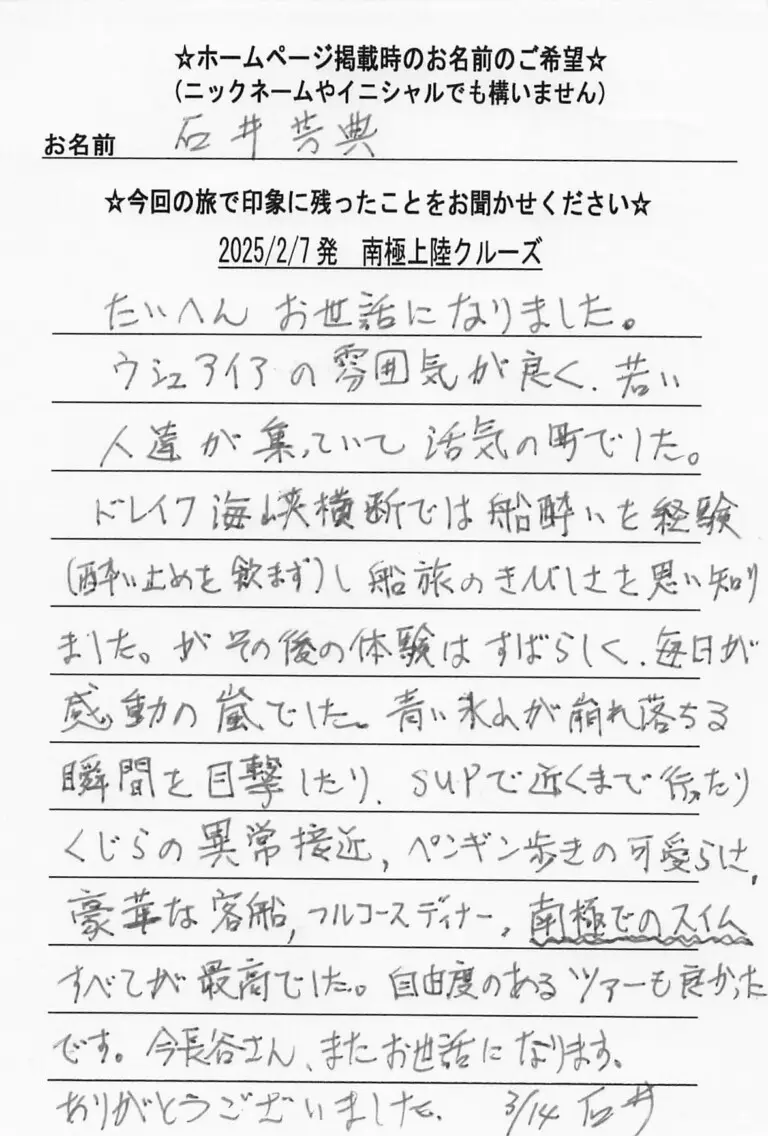 ☆ホームページ掲載時のお名前のご希望☆
(ニックネームやイニシャルでも構いません)
お名前 石井芳典
☆今回の旅で印象に残ったことをお聞かせください☆
2025/2/7発 南極上陸クルーズ
たいへん お世話になりました。
ウシュアイアの雰囲気が良く、若い
人達が集っていて活気の町でした。
ドレイク海峡横断では船酔いを経験
(酔い止めを飲まず)し船旅のきびしさを思い知り
ました。がその後の体験はすばらしく、毎日が
感動の嵐でした。青い氷山が崩れ落ちる
瞬間を目撃したり、SUPで近くまで行ったり
くじらの異常接近, ペンギン歩きの可愛らしさ,
豪華な客船, フルコースディナー, 南極でのスイム
すべてが最高でした。自由度のあるツアーも良かった
です。今長谷さん、またお世話になります。
ありがとうございました。 3/14 石井